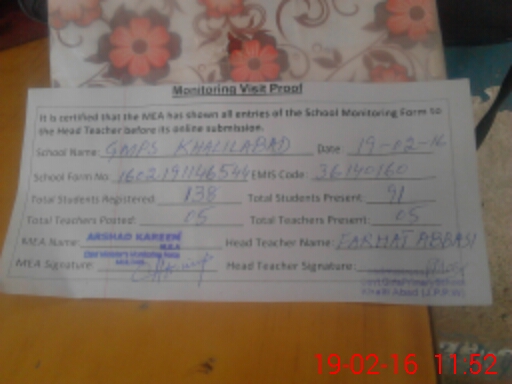 Monitoring Visit Proof
It is certified that the MEA has shown all entries of the School Monitoring Form to
the Head Teacher before its online submission.
School Name: GMPS KHALILABAD Date 19-02-16
School Form No: 1602191146544 EMIS Code: 36140160
Total Students Registered: 138 Total Students Present: 91
Total Teachers Posted: 05 Total Teachers Present: 05
MEA Name: ARSHAD KAREEM Head Teacher Name: FARHAT ABBASI
MEA Signature: Head Teacher Signature:
19-02-16 11:52